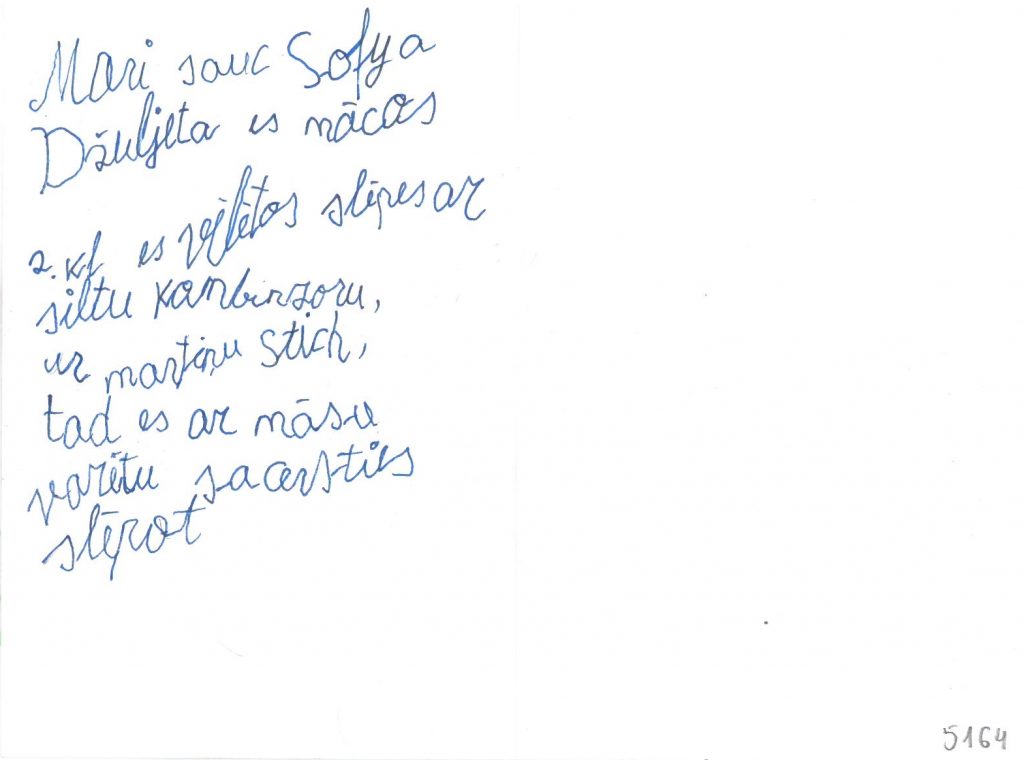 Mari sauc Sofya
Džuljeta es mācos
2. kl es vēlētos slēpes ar
siltu kambinzonu,
ar martiņu Stich,
tad es ar māsu
varētu sacersties
slēpot
5164